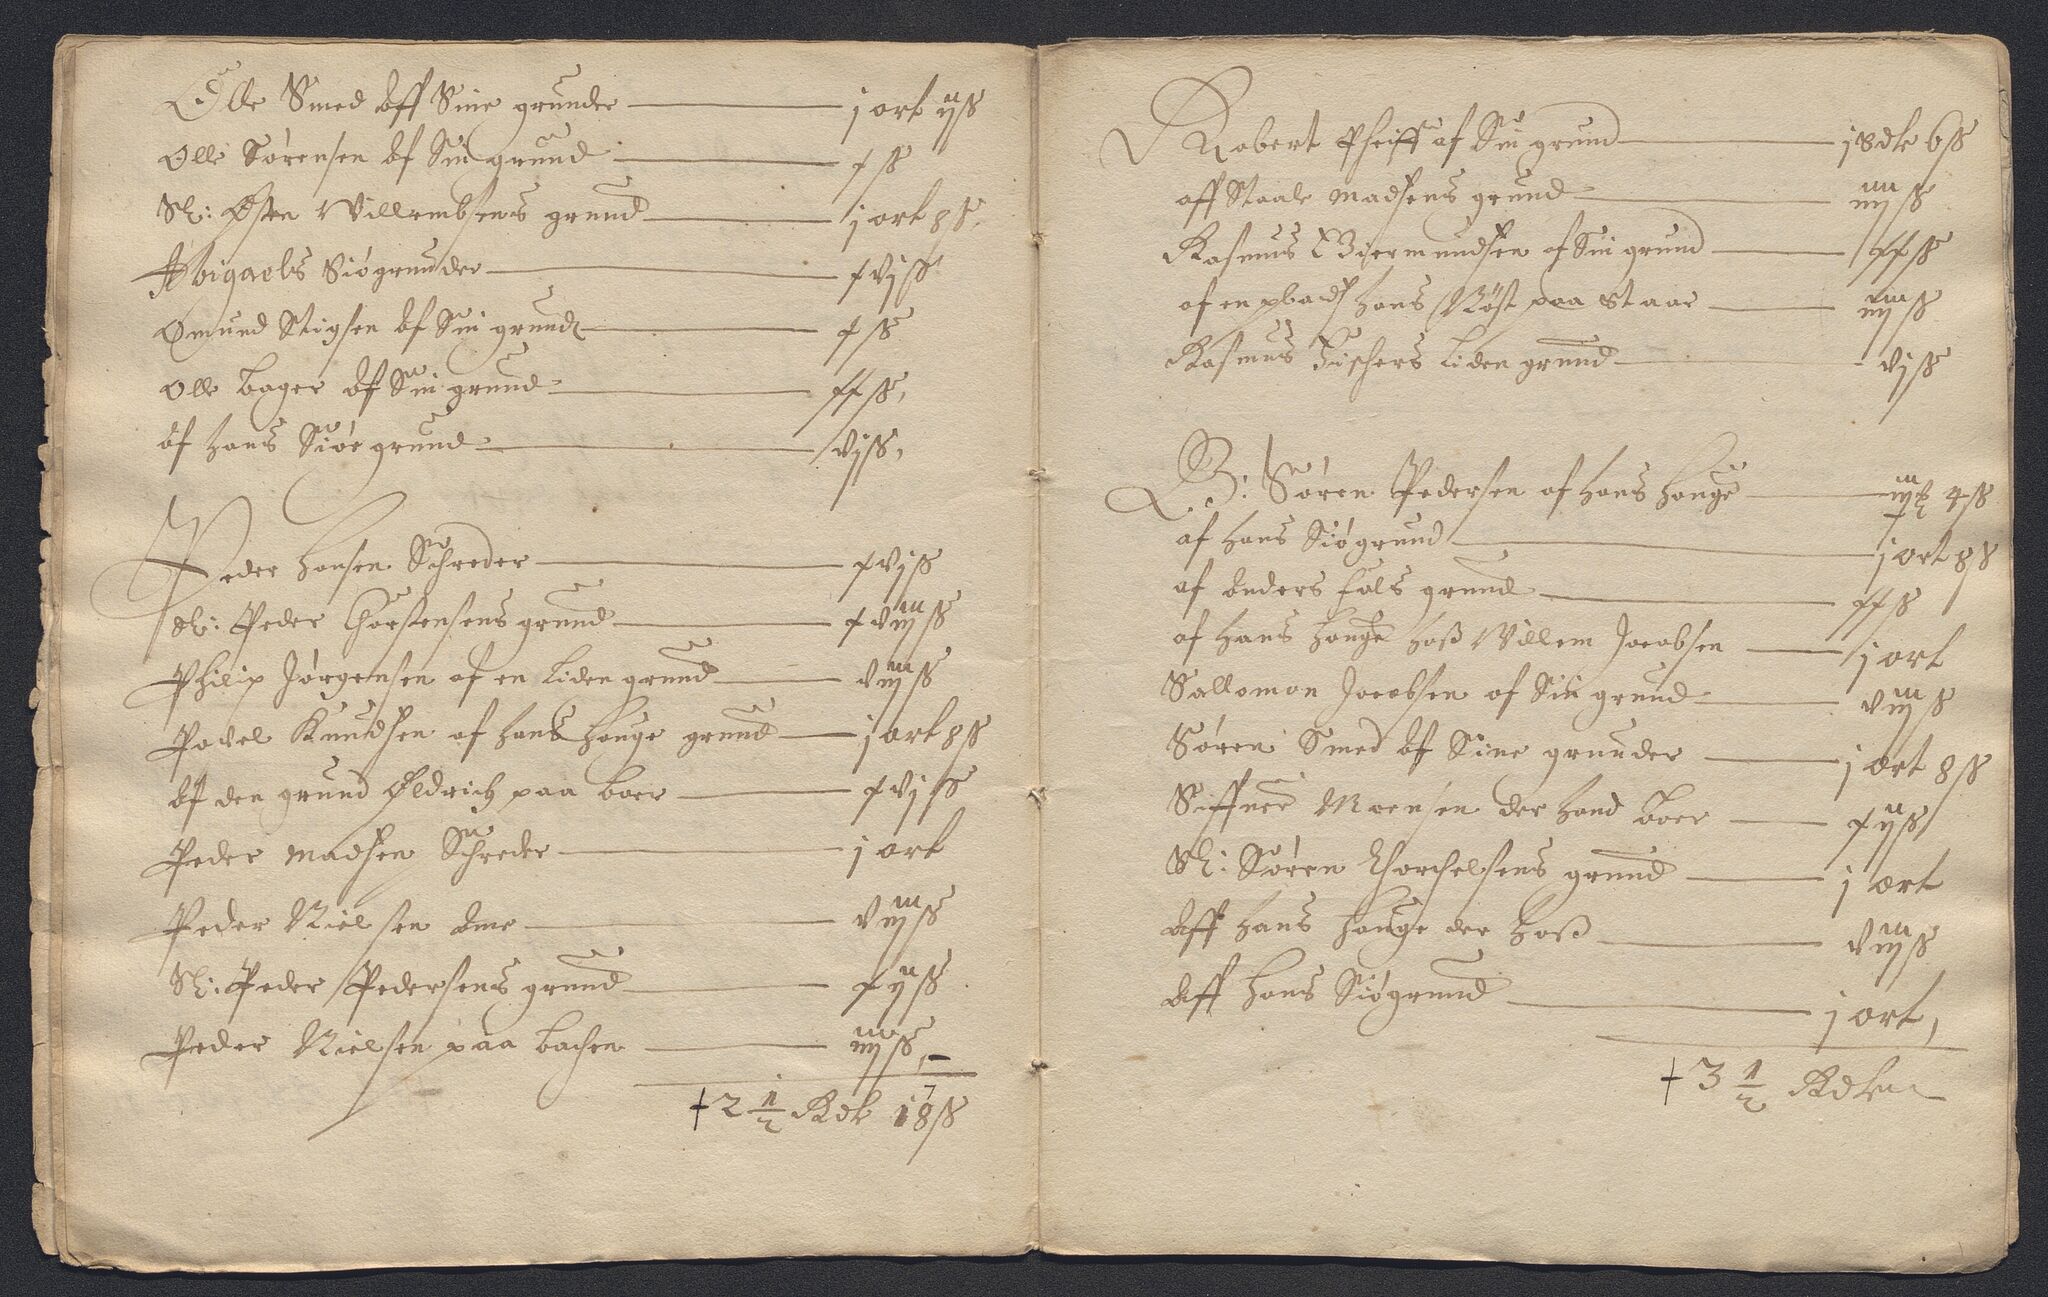 Olle Smed aff Sine grunde j ort ijß
Olle Sørensen af Sin grund xß
Sl: Østen Willembsens grund j ort 8ß
Abigaels Siøgrunder xvjß
Omund Stigsen af Sin grund xß
Olle bager af Sin grund xxß
af hans Siøe grund vjß
Peder hansen Schreder xvjß
Sl: Peder Thorstensens grund xviijß
Philip Jørgensen af en liden grund viijß
Povel Knudsen af hans houge grund j ort 8ß
af den grund Eldrich paa boer xvjß
Peder Madsen Schreder j ort
Peder Nielsen viijß
Sl: Peder Pedersens grund xijß
Peder Nielsen paa bachen iiijß
2 1/2 Rdlr 18ß
Robert Pheiff af Sin grund j Rdlr 6ß
aff Staale Madsens grund iiijß
Rasmus Giermundsen af Sin grund xxß
af en plads hans paa staar iiijß
Rasmus Fischers liden grund vjß
Søren Pedersen af hans houge 4ß
af hans Siøgrund j ort 8ß
af Anders Fals grund xxß
af hans houge hoß Willem Jacobsen j ort
Sallomon Jacobsen af Sin grund viijß
Søren Smed af Sine grunder j ort 8ß
Siffuer Moensen der hand boer xijß
Sl: Søren Thorchelsens grund j ort
aff hans houge der hoß viijß
aff hans Siøgrund j ort
3 1/2 Rdlr